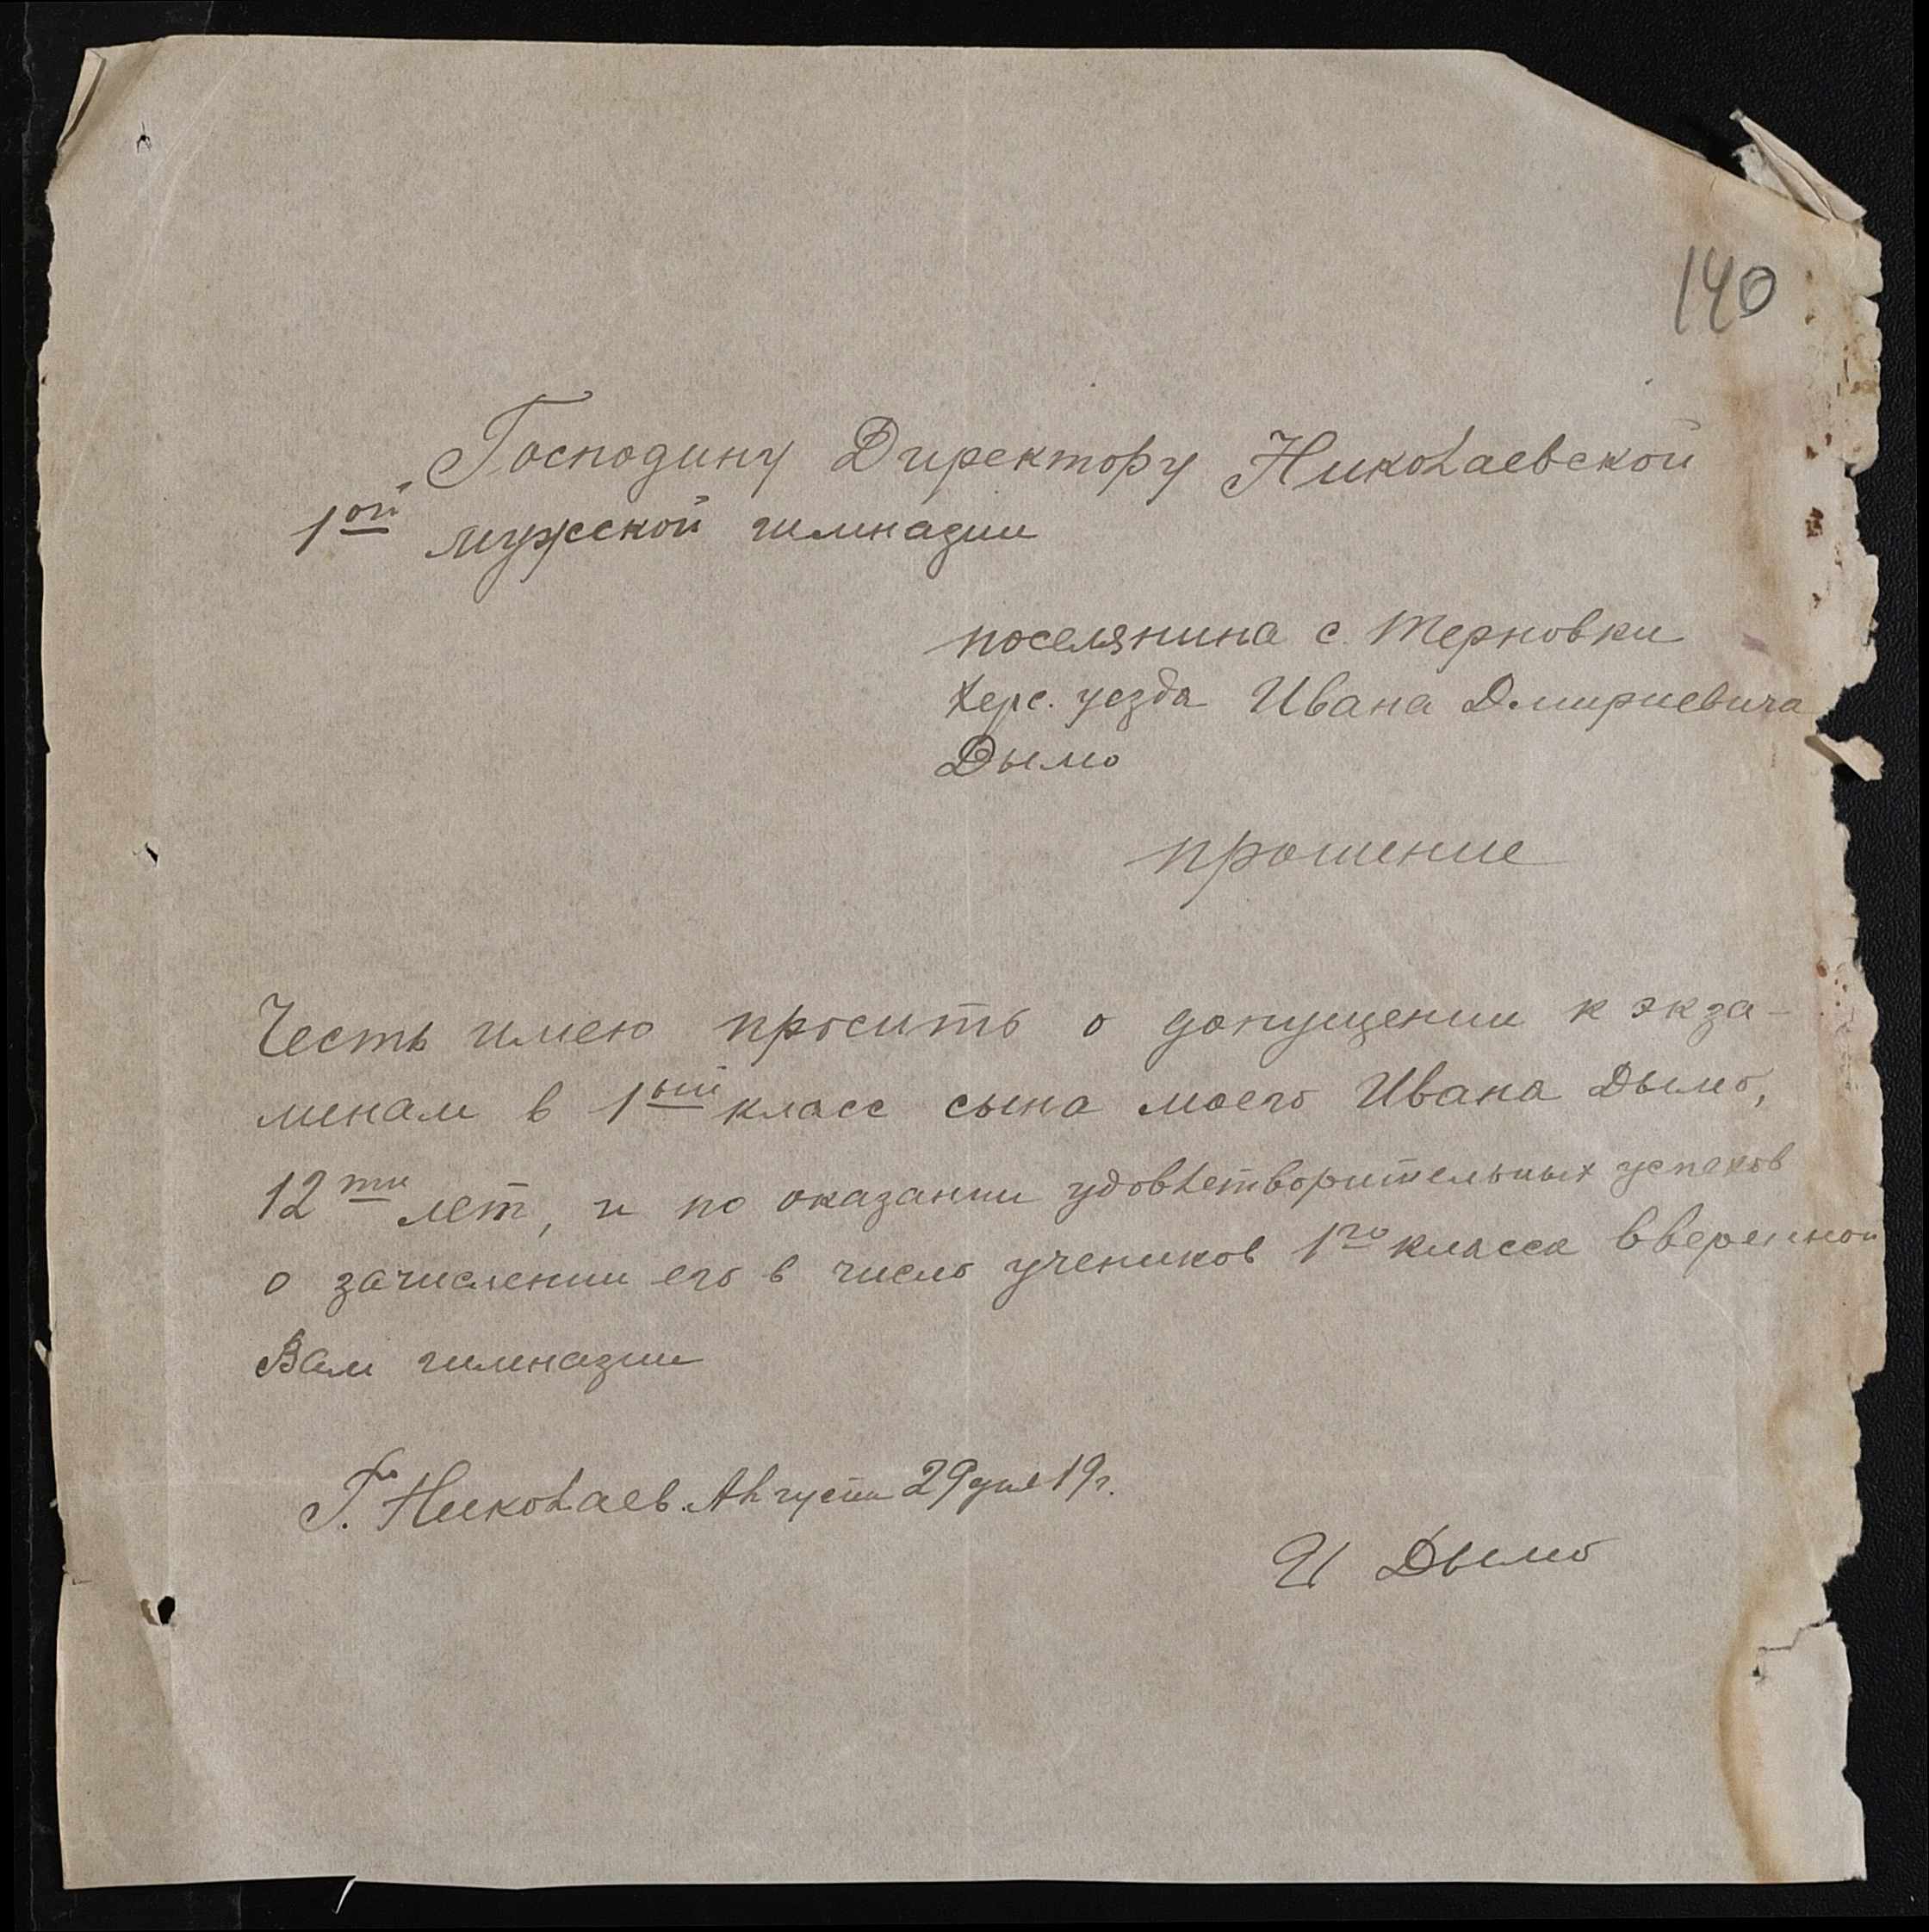 140
Господину Директору Николаевской
1ой мужской гимназии
поселянина с. Терновки
Херс. уезда Ивана Дмириевича
Дымо
прошение
Честь имею просить о допущении к экза-
менам в 1ый класс сына моего Ивана Дымо,
12ти лет, и по оказании удовлетворительных успехов
о зачислении его в число учеников 1го класса вверенной
Вам гимназии
Г. Николаев. Августа 29 дня 19 г.
И Дымо